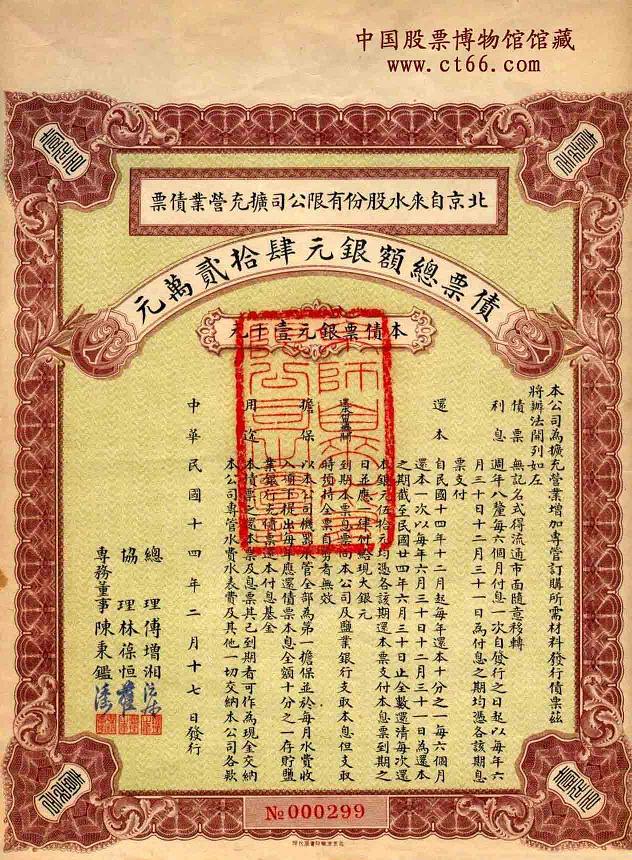 中国股票博物馆馆藏
www.ct66.com
北京自來水股份有限公司擴充營業債票
債票總額銀元肆拾貳萬元
本債票銀元壹千元
本公司為擴充營業增加專管訂購所需材料發行債票茲
將辦法開列如左
債票 無記名式得流通市面隨意移轉
利息 週年八釐每六個月付息一次自發行之日起以每年六
月三十日十二月三十一日為付息之期均憑各該期息
票支付
還本 自民國十四年十二月起每年還本十分之一每六個月
還本一次以每年六月三十日十二月三十一日為還本
之期截至民國廿四年六月三十日止全數還清每次還
本銀元伍拾元均憑各該期還本票支付本息票到期之
日並應一律付給現大銀元
到期本票息票向本公司及鹽業銀行支取本息但支取
時預持全票自剪者無效
擔保 以本公司機器水管全部為第一擔保並於每月水費收
入項下提出每年應還債票本息全額十分之一存貯鹽
業銀行充債票還本付息基金
用途 本債票之還本票及息票其已到期者可作為現金交納
本公司專管水費水表費及其他一切交納本公司各款
中華民國十四年二月十七日發行
總理傅增湘
協理林葆恒
專務董事陳秉鑑
№000299